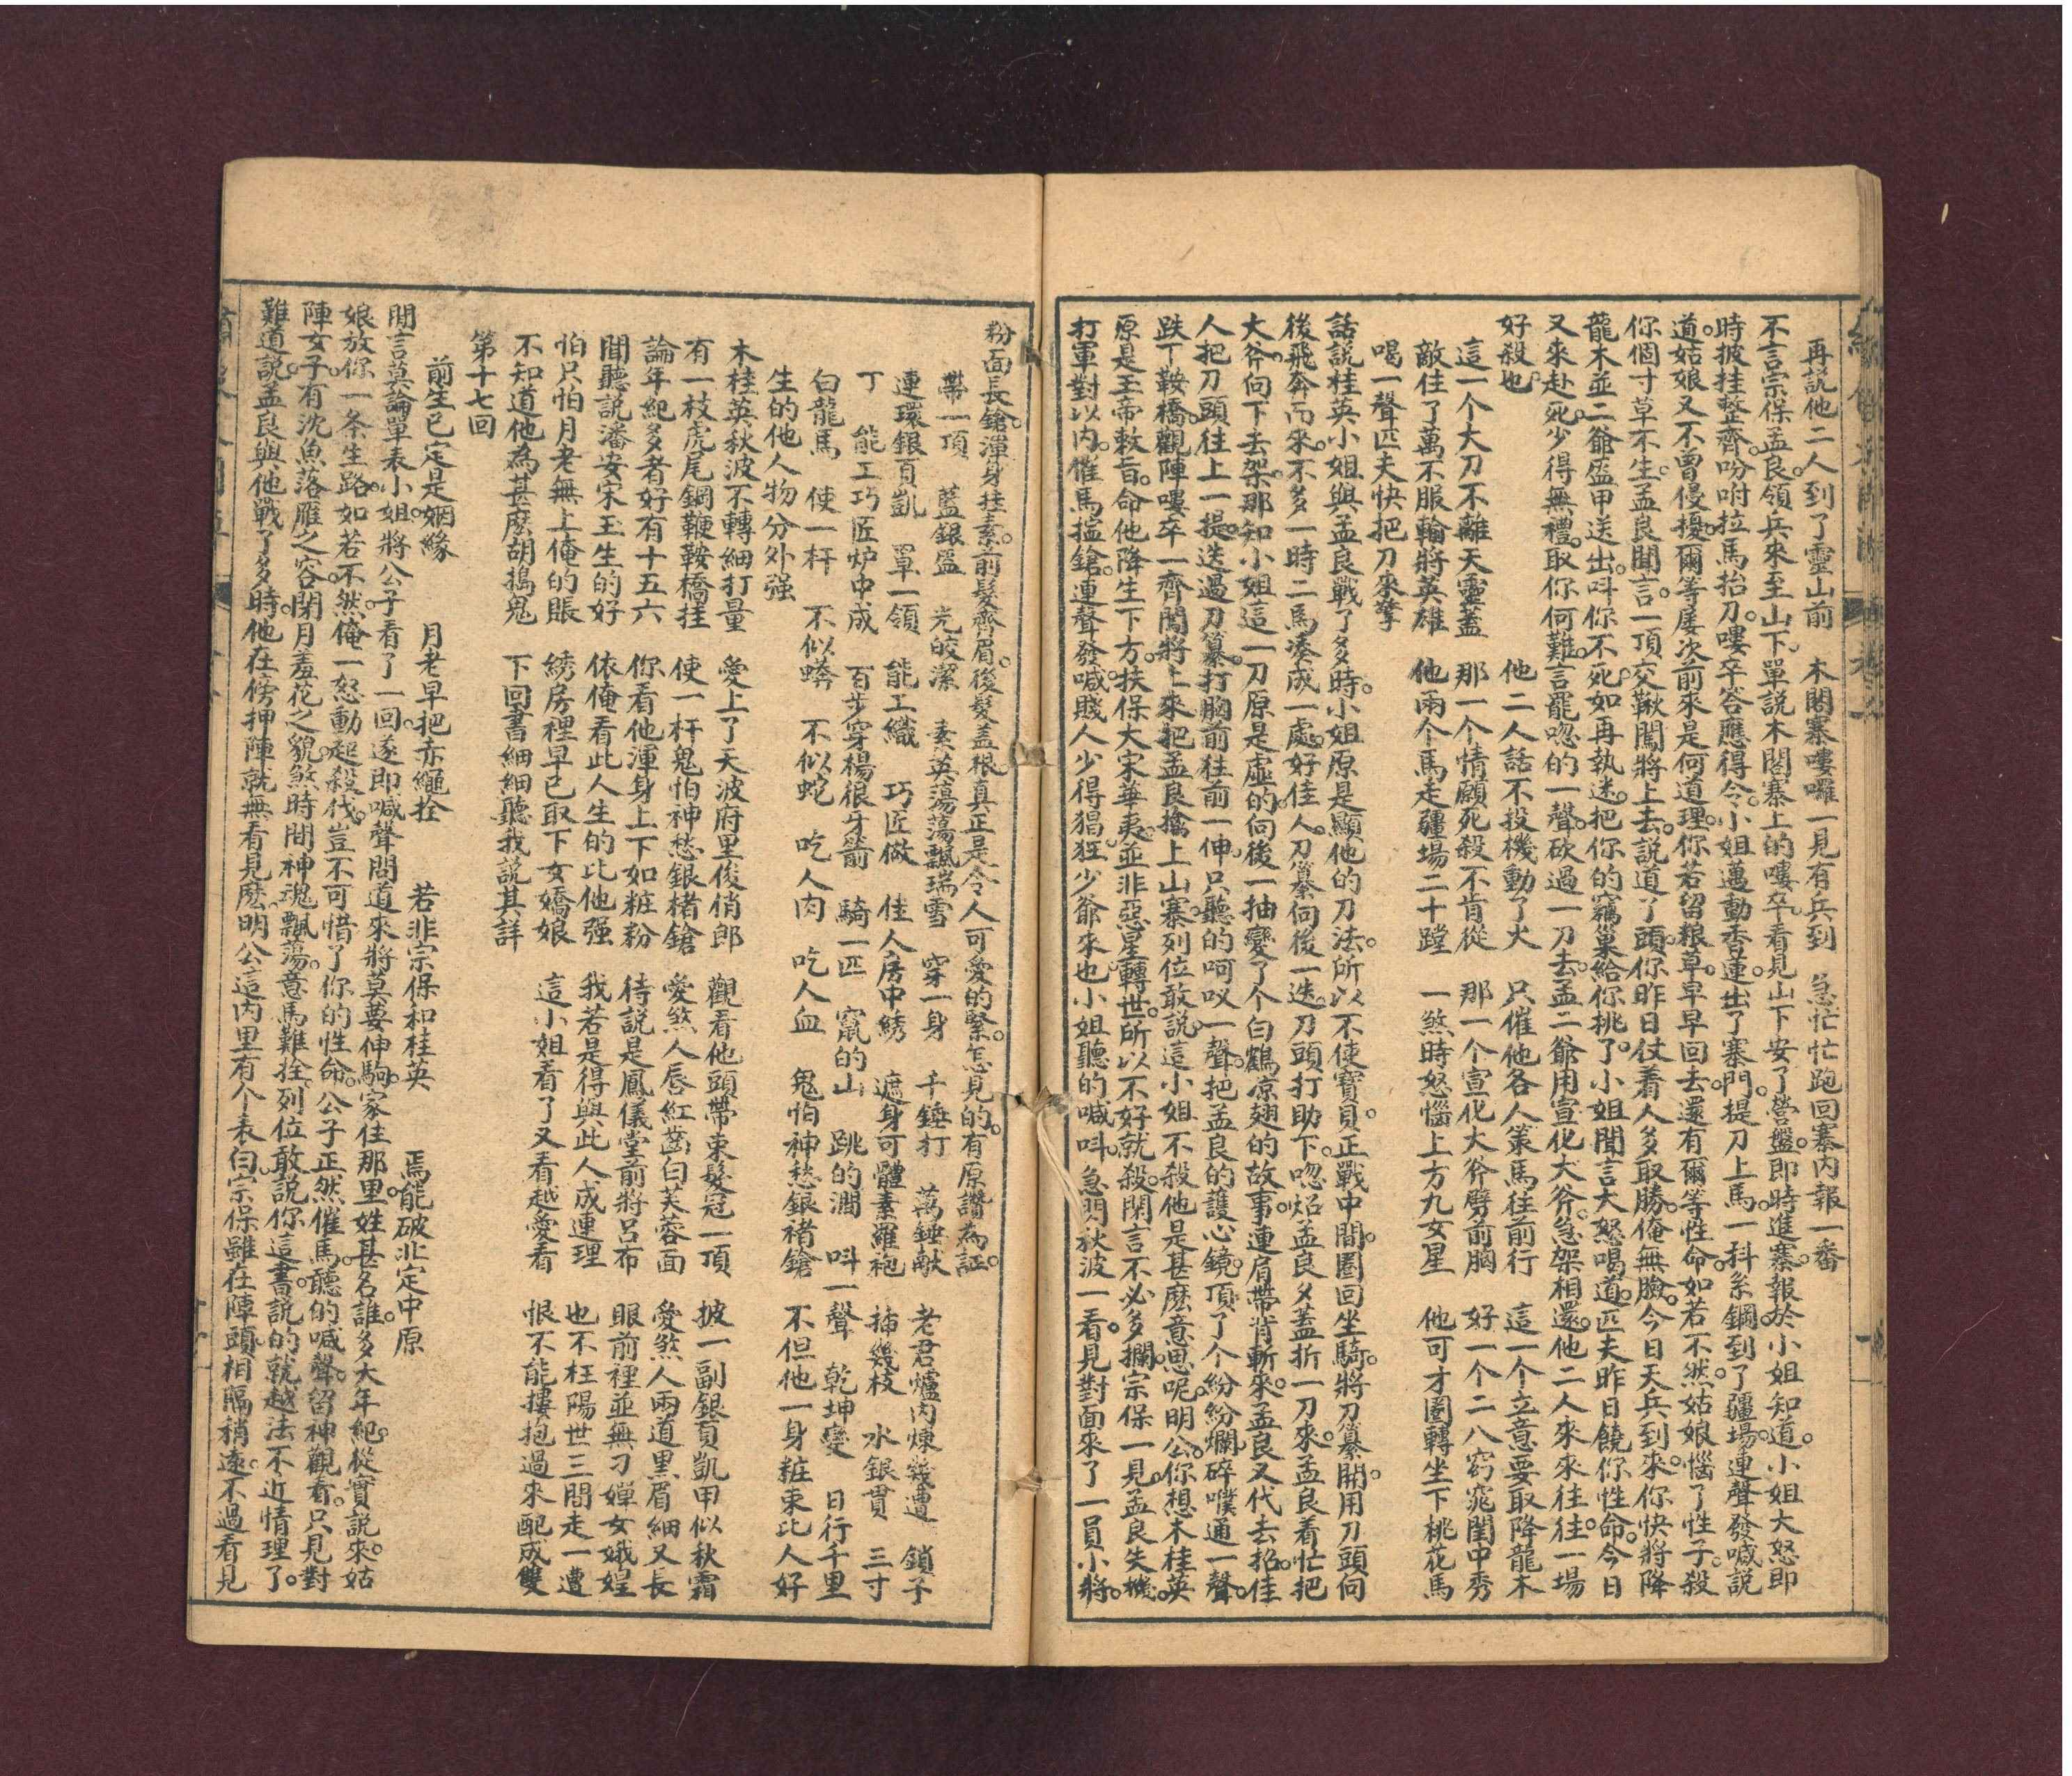 再説他二人到了靈山前　木閣寨嘍囉一見有兵到　急忙忙跑回寨内報一番
不言宗保孟良領兵來至山下單説木閣寨上的嘍卒看見山下安了營盤即時進寨報於小姐知道小姐大怒即
時披挂整齊吩咐拉馬抬刀嘍卒答應得令小姐邁動香蓮出了寨門提刀上馬一抖糸鋼到了疆場連聲發喊説
道姑娘又不曾侵擾爾等屡次前來是何道理你若留粮草早早回去還有爾等性命如若不然姑娘惱了性子殺
你個寸草不生孟良聞言一項交鞦闖將上去説道了頭你昨日仗着人多取勝俺無臉今日天兵到來你快將降
龍木並二爺盔甲送出呌你不死如再執迷把你的竊巢給你挑了小姐聞言大怒喝道匹夫昨日饒你性命今日
又來赴死少得無禮取你何難言罷唿的一聲砍過一刀去孟二爺用宣化大斧急架相還他二人來來往往一場
好殺也　他二人話不投機動了火　只催他各人策馬往前行　這一个立意要取降龍木
這一个大刀不離天靈蓋　那一个情願死殺不肯從　那一个宣化大斧劈前胸　好一个二八窈窕閨中秀
敵住了萬不服輸將英雄　他兩个馬走疆場二十蹚　一煞時怒惱上方九女星　他可才圈轉坐下桃花馬
喝一聲匹夫快把刀來擎
話説桂英小姐與孟良戰了多時小姐原是顯他的刀法所以不使寶貝正戰中間圈回坐騎將刀纂開用刀頭向
後飛奔而來不多一時二馬湊成一處好佳人刀纂向後一迭刀頭打助下唿炤孟良夕蓋折一刀來孟良着忙把
大斧向下去架那知小姐這一刀原是虛的向後一抽變了个白鶴凉翅的故事連肩帶背斬來孟良又代去招佳
人把刀頭往上一提迭過刀纂打胸前往前一伸只聽的呵叹一聲把孟良的護心鏡頂了个紛紛爛碎噗通一聲
跌下鞍橋觀陣嘍卒一齊闖將上來把孟良擒上山寨列位敢説這小姐不殺他是甚麽意思呢明公你想木桂英
原是玉帝敕旨命他降生下方扶保大宋華夷並非惡星轉世所以不好就殺閑言不必多攔宗保一見孟良失機
打軍對以内催馬搵鎗連聲發喊賤人少得猖狂少爺來也小姐聽的喊呌急閃秋波一看見對面來了一員小將
粉面長鎗渾身挂素前髮齊眉後髮盖根真正是令人可愛的緊怎見的有原讚為証
帶一項　藍銀盔　光皎潔　素英蕩蕩飄瑞雪　穿一身　千錘打　萬錘献　老君爐内煉幾遭　鎖子
連環銀頁凱　罩一領　能工織　巧匠做　佳人房中綉　遮身可體素羅袍　揷幾枝　水銀貫　三寸
丁　能工巧匠炉中成　百步穿楊很牙箭　騎一匹　竄的山　跳的澗　呌一聲　乾坤變　日行千里
白龍馬　使一杆　不似蟒　不似蛇　吃人肉　吃人血　鬼怕神愁銀褚鎗　不但他一身粧束比人好
生的他人物分外强
木桂英秋波不轉細打量　愛上了天波府里俊俏郎　觀看他頭帶束髮冠一頂　披一副銀頁凱甲似秋霜
有一枝虎尾鋼鞭鞍橋挂　使一杆鬼怕神愁銀楮鎗　愛煞人唇紅齒白芙蓉面　愛煞人兩道黒眉細又長
論年紀多者好有十五六　你看他渾身上下如粧粉　待説是鳳儀堂前將呂布　眼前裡並無刁嬋女娥媓
聞聽説潘安宋玉生的好　依俺看此人生的比他强　我若是得與此人成連理　也不枉陽世三間走一遭
怕只怕月老無上俺的賬　綉房裡早已取下女嬌娘　這小姐看了又看越愛看　恨不能摟抱過來配成雙
不知道他為甚麽胡搗鬼　下回書細細聽我説其詳
第十七回
前生已定是姻緣　月老早把赤繩拴　若非宗保和桂英　焉能破北定中原
閒言莫論單表小姐將公子看了一回遂即喊聲問道來將莫要伸駒家住那里姓甚名誰多大年紀從實説來姑
娘放你一条生路如若不然俺一怒動起殺代豈不可惜了你的性命公子正然催馬聽的喊聲留神觀看只見對
陣女子有沈魚落雁之容閉月羞花之貌煞時間神魂飄蕩意馬難拴列位敢説你這書説的就越法不近情理了
難道説孟良與他戰了多時他在傍押陣就無看見麽明公這内里有个表白宗保雖在陣頭相隔稍遠不過看見